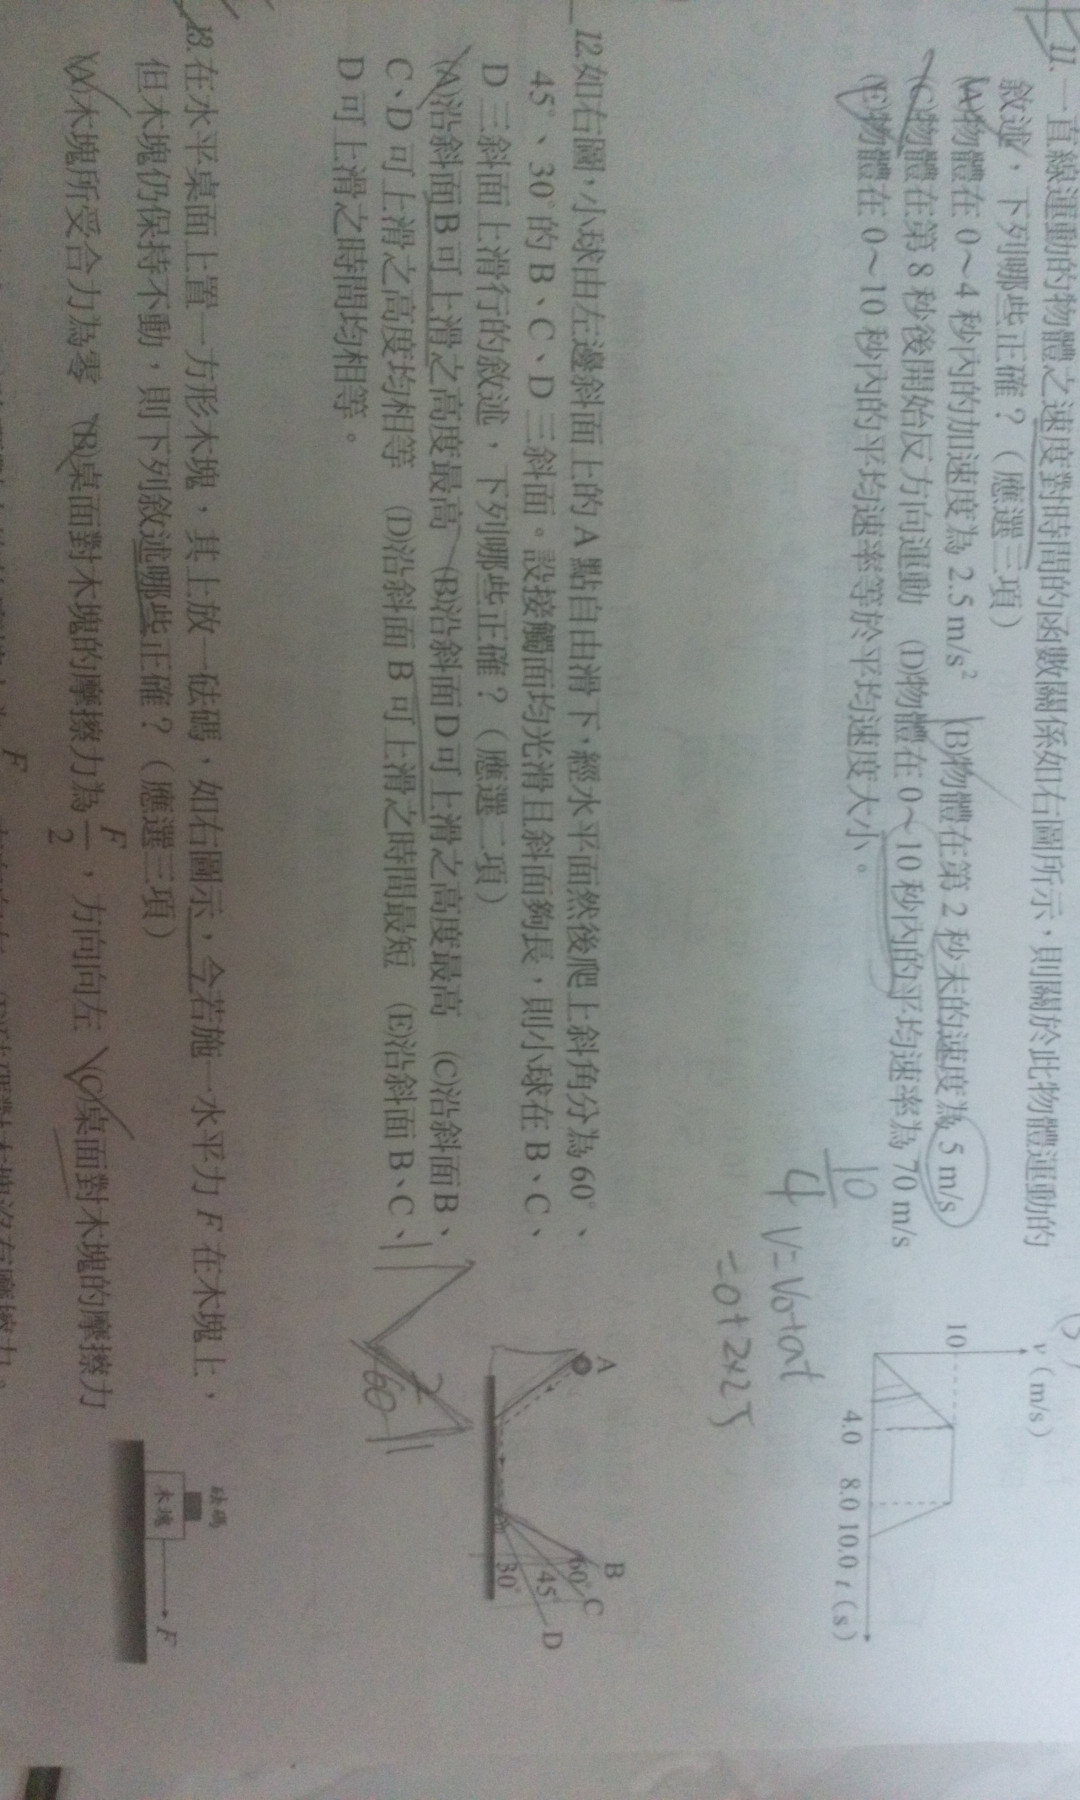 11.一直線運動的物體之速度對時間的函數關係如右圖所示，則關於此物體運動的
敘述，下列哪些正確？（應選三項）
(A)物體在 0～4 秒內的加速度為 2.5 m/s² (B)物體在第 2 秒末的速度為 5 m/s
(C)物體在第 8 秒後開始反方向運動 (D)物體在 0～10 秒內的平均速率為 70 m/s
(E)物體在 0～10 秒內的平均速率等於平均速度大小。
v（m/s）
10
4.0 8.0 10.0 t（s）
10
4
V=V₀+at
=0+2×2.5
12.如右圖，小球由左邊斜面上的 A 點自由滑下，經水平面然後爬上斜角分為 60°、
45°、30°的 B、C、D 三斜面。設接觸面均光滑且斜面夠長，則小球在 B、C、
D 三斜面上滑行的敘述，下列哪些正確？（應選二項）
(A)沿斜面 B 可上滑之高度最高 (B)沿斜面 D 可上滑之高度最高 (C)沿斜面 B、
C、D 可上滑之高度均相等 (D)沿斜面 B 可上滑之時間最短 (E)沿斜面 B、C、
D 可上滑之時間均相等。
A
B
C
D
60°
45°
30°
2
60
13.在水平桌面上置一方形木塊，其上放一砝碼，如右圖示，今若施一水平力 F 在木塊上，
但木塊仍保持不動，則下列敘述哪些正確？（應選三項）
(A)木塊所受合力為零 (B)桌面對木塊的摩擦力為 F/2，方向向左 (C)桌面對木塊的摩擦力
砝碼
木塊
F